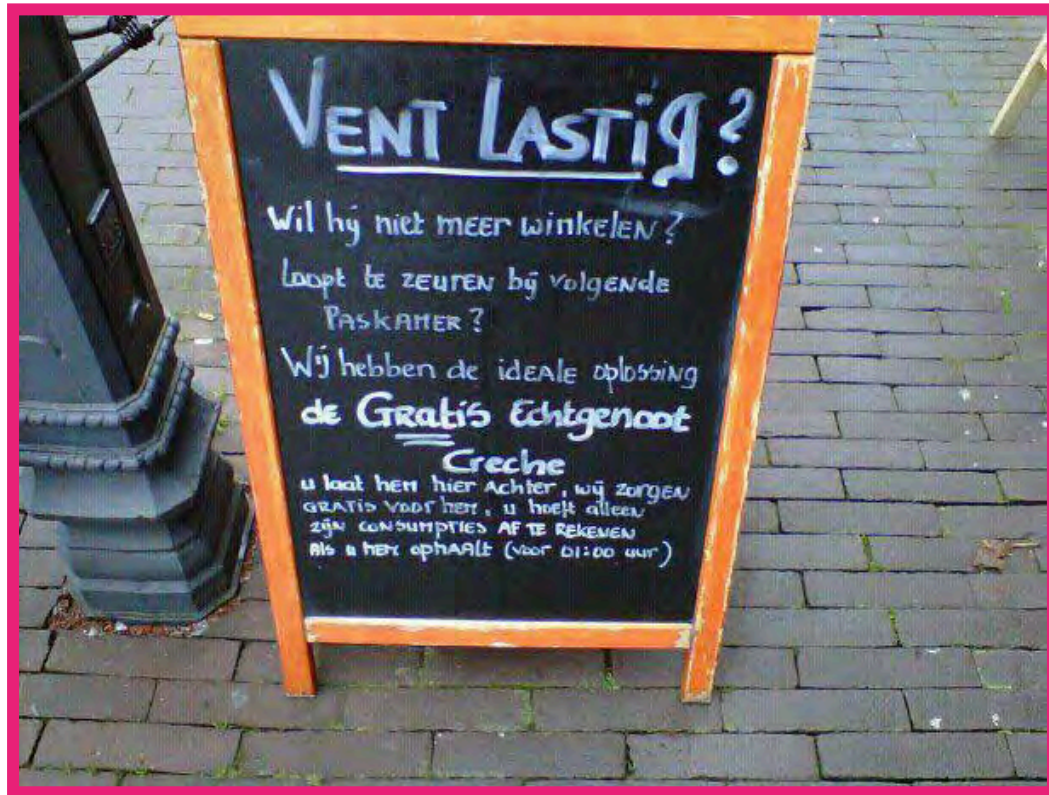 VENT LASTiG?
Wil hij niet MEER WiNKELEN?
Loopt te ZEUREN bij Volgende
PASKAMER?
Wij hebben de iDEALE oplossiNG
de GRatis Echtgenoot
Creche
u laat hem hier Achter, wij Zorgen
GRATis Voor hem, u hoeft alleen
zijn CONSUMPTIES AF TE REKENEN
Als u hem ophAAlt (voor 01:00 uur)